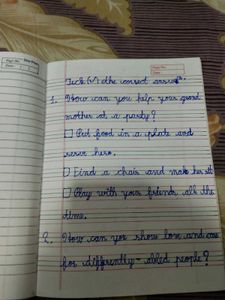 Tick (✓) the correct answer.
1. How can you help your grand
mother at a party?
☐ Put food in a plate and
serve here.
☐ Find a chair and make her sit
☐ Play with your friends all the
time.
2. How can you show love and care
for differently-abled people?